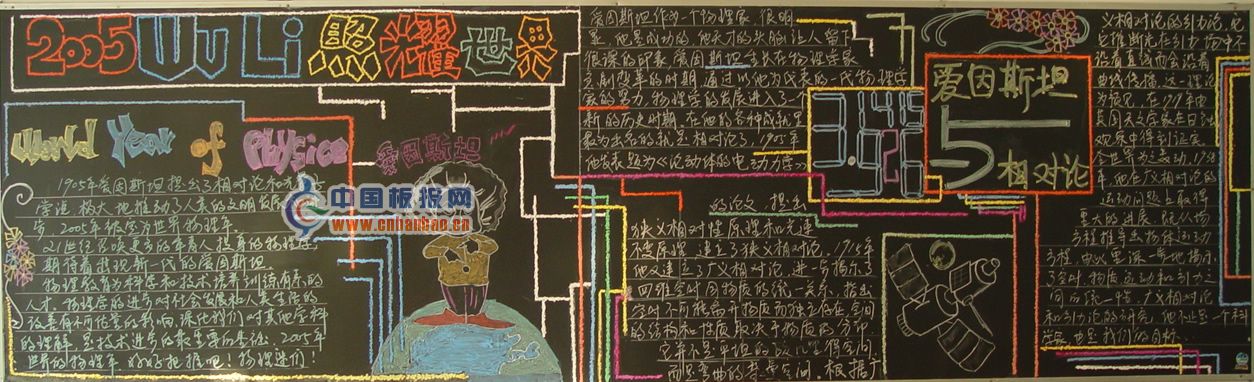 2005 WU Li 照耀世界
World Year of Physics
1905年爱因斯坦提出了相对论和光
学说 极大地推动了人类的文明发展
2005年被定为世界物理年
21世纪召唤更多的年青人投身的物理
期待着出现新一代的爱因斯坦
物理教育为科学和技术培养训练有素的
人才 物理学的进步对社会发展和人类生活的
改善有不可估量的影响 深化我们对其他学科
的理解 是技术进步的最重要的基础 2005年
世界的物理年 物理迷们！
爱因斯坦
中国板报网
www.cnbanbao.cn
爱因斯坦作为一个物理学家 很明
显 他是成功的 他天才的头脑让人留下
很深的印象 爱因斯坦 在物理学家
变革的时期 通过以他为代表的一代物理学
家的努力 物理学的发展进入了一
新的历史时期 在他的各种成就里
最为出名的就是相对论了 1905年
他发表题为《论动体的电动力学》
的论文 提出
狭义相对性原理和光速
不变原理 建立了狭义相对论 1915年
他又建立了广义相对论 进一步揭示了
四维空时同物质的统一关系 指出
空时不可能离开物质而独立存在 空间
的结构和性质取决于物质的分布
它并不是平坦的欧几里得空间
而是弯曲的黎曼空间 根据广
3.1415
3.5
26
爱因斯坦
5
相对论
义相对论的引力论 他
推断光在引力场中不
沿着直线而会沿着
曲线传播 这一理论
预见 在1919年由
英国天文学家在日蚀
观察中得到证实
全世界为之轰动 1938
年 他在广义相对论的
运动问题上取得
重大 即从场
方程推导出物体运动
方程 由此更深一步地揭示
了空时 物质 运动和引力之
间的统一性 广义相对论
和引力论的研究 他不止是一个科
学家 也是我们的目标